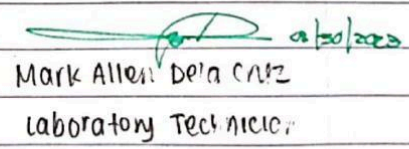 Mark Allen Dela Cruz
Laboratory Technician